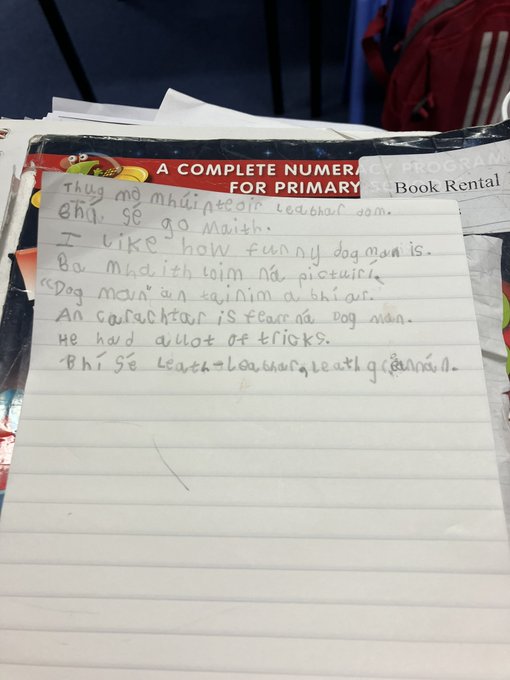 A COMPLETE NUMERACY PROGRAM
FOR PRIMARY
Book Rental
Thug mo mhúinteoir leabhar dom.
Bhí sé go maith.
I like how funny dog man is.
Ba mhaith loim ná pictuirí.
"Dog man" an tainim a bhí ar.
An carachtar is fearr ná Dog man.
He had allot of tricks.
Bhí sé leath-leabhar, leath